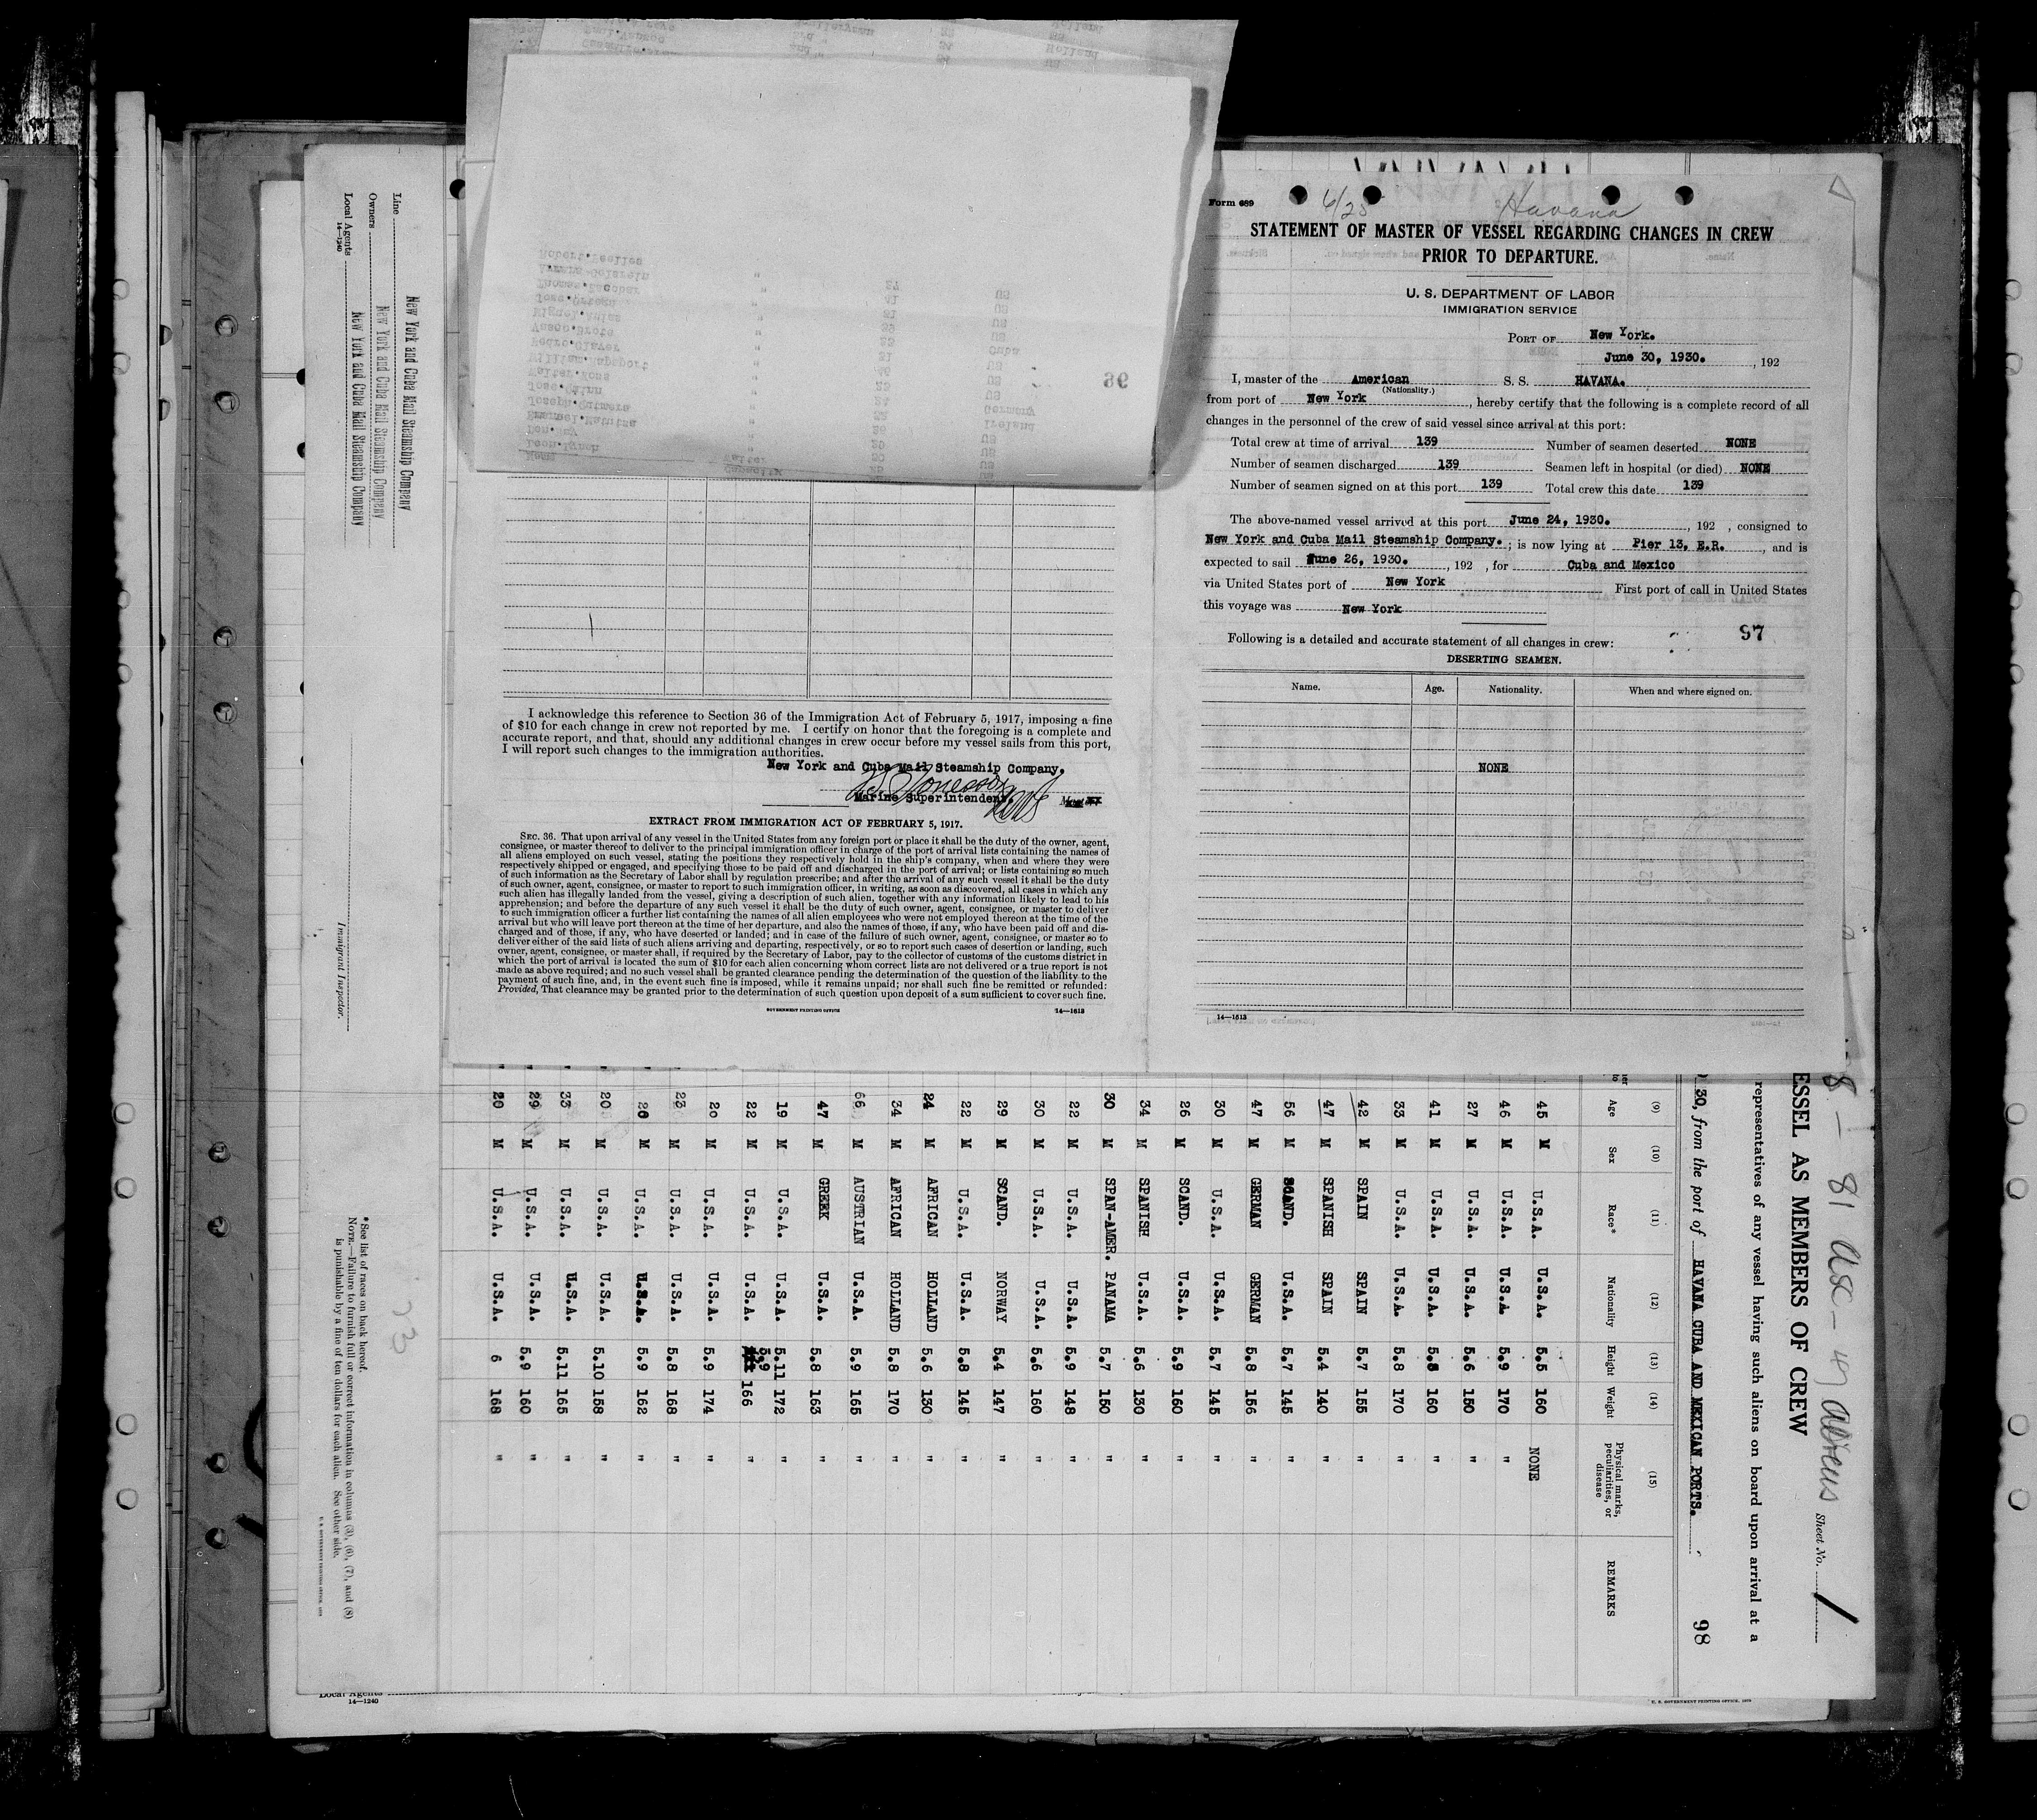 Form 689
6/25
Havana
STATEMENT OF MASTER OF VESSEL REGARDING CHANGES IN CREW
PRIOR TO DEPARTURE.
U. S. DEPARTMENT OF LABOR
IMMIGRATION SERVICE
PORT OF New York.
June 30, 1930. , 192
I, master of the American S. S. HAVANA.
(Nationality.)
from port of New York , hereby certify that the following is a complete record of all
changes in the personnel of the crew of said vessel since arrival at this port:
Total crew at time of arrival 139 Number of seamen deserted NONE
Number of seamen discharged 139 Seamen left in hospital (or died) NONE
Number of seamen signed on at this port 139 Total crew this date 139
The above-named vessel arrived at this port June 24, 1930. , 192 , consigned to
New York and Cuba Mail Steamship Company. ; is now lying at Pier 13, E.R. , and is
expected to sail June 26, 1930. , 192 , for Cuba and Mexico
via United States port of New York First port of call in United States
this voyage was New York
97
Following is a detailed and accurate statement of all changes in crew:
DESERTING SEAMEN.
Name. Age. Nationality. When and where signed on.
NONE
14—1613
I acknowledge this reference to Section 36 of the Immigration Act of February 5, 1917, imposing a fine
of $10 for each change in crew not reported by me. I certify on honor that the foregoing is a complete and
accurate report, and that, should any additional changes in crew occur before my vessel sails from this port,
I will report such changes to the immigration authorities.
New York and Cuba Mail Steamship Company.
Marine Superintendent.
EXTRACT FROM IMMIGRATION ACT OF FEBRUARY 5, 1917.
SEC. 36. That upon arrival of any vessel in the United States from any foreign port or place it shall be the duty of the owner, agent,
consignee, or master thereof to deliver to the principal immigration officer in charge of the port of arrival lists containing the names of
all aliens employed on such vessel, stating the positions they respectively hold in the ship's company, when and where they were
respectively shipped or engaged, and specifying those to be paid off and discharged in the port of arrival; or lists containing so much
of such information as the Secretary of Labor shall by regulation prescribe; and after the arrival of any such vessel it shall be the duty
of such owner, agent, consignee, or master to report to such immigration officer, in writing, as soon as discovered, all cases in which any
such alien has illegally landed from the vessel, giving a description of such alien, together with any information likely to lead to his
apprehension; and before the departure of any such vessel it shall be the duty of such owner, agent, consignee, or master to deliver
to such immigration officer a further list containing the names of all alien employees who were not employed thereon at the time of the
arrival but who will leave port thereon at the time of her departure, and also the names of those, if any, who have been paid off and dis-
charged and of those, if any, who have deserted or landed; and in case of the failure of such owner, agent, consignee, or master so to
deliver either of the said lists of such aliens arriving and departing, respectively, or so to report such cases of desertion or landing, such
owner, agent, consignee, or master shall, if required by the Secretary of Labor, pay to the collector of customs of the customs district in
which the port of arrival is located the sum of $10 for each alien concerning whom correct lists are not delivered or a true report is not
made as above required; and no such vessel shall be granted clearance pending the determination of the question of the liability to the
payment of such fine, and, in the event such fine is imposed, while it remains unpaid; nor shall such fine be remitted or refunded:
Provided, That clearance may be granted prior to the determination of such question upon deposit of a sum sufficient to cover such fine.
GOVERNMENT PRINTING OFFICE
14—1613
81 USC — 49 aliens
Sheet No. 1
ESSEL AS MEMBERS OF CREW
representatives of any vessel having such aliens on board upon arrival at a
30, from the port of HAVANA CUBA AND MEXICAN PORTS.
98
(9) (10) (11) (12) (13) (14) (15)
Age Sex Race* Nationality Height Weight Physical marks, peculiarities, or disease REMARKS
45 M U.S.A. U.S.A. 5.5 160 NONE
46 M U.S.A. U.S.A. 5.9 170 "
27 M U.S.A. U.S.A. 5.6 150 "
41 M U.S.A. U.S.A. 5.8 160 "
33 M U.S.A. U.S.A. 5.8 170 "
42 M SPAIN SPAIN 5.7 155 "
47 M SPANISH SPAIN 5.4 140 "
56 M SCAND. U.S.A. 5.7 145 "
47 M GERMAN GERMAN 5.8 156 "
30 M U.S.A. U.S.A. 5.7 145 "
26 M SCAND. U.S.A. 5.9 160 "
34 M SPANISH U.S.A. 5.6 130 "
30 M SPAN-AMER. PANAMA 5.7 150 "
22 M U.S.A. U.S.A. 5.9 148 "
30 M U.S.A. U.S.A. 5.6 160 "
29 M SCAND. NORWAY 5.4 147 "
22 M U.S.A. U.S.A. 5.8 145 "
24 M AFRICAN HOLLAND 5.6 130 "
34 M AFRICAN HOLLAND 5.8 170 "
66 M AUSTRIAN U.S.A. 5.9 165 "
47 M GREEK U.S.A. 5.8 163 "
19 M U.S.A. U.S.A. 5.11 172 "
22 M U.S.A. U.S.A. 5.9 166 "
20 M U.S.A. U.S.A. 5.9 174 "
23 M U.S.A. U.S.A. 5.8 168 "
20 M U.S.A. U.S.A. 5.9 162 "
20 M U.S.A. U.S.A. 5.10 158 "
33 M U.S.A. U.S.A. 5.11 165 "
29 M U.S.A. U.S.A. 5.9 160 "
20 M U.S.A. U.S.A. 6 168 "
Line New York and Cuba Mail Steamship Company
Owners New York and Cuba Mail Steamship Company
Local Agents New York and Cuba Mail Steamship Company
14—1240
Immigrant Inspector.
*See list of races on back hereof.
NOTE.—Failure to furnish full or correct information in columns (3), (6), (7), and (8)
is punishable by a fine of ten dollars for each alien. See other side.
Local Agents
14—1240